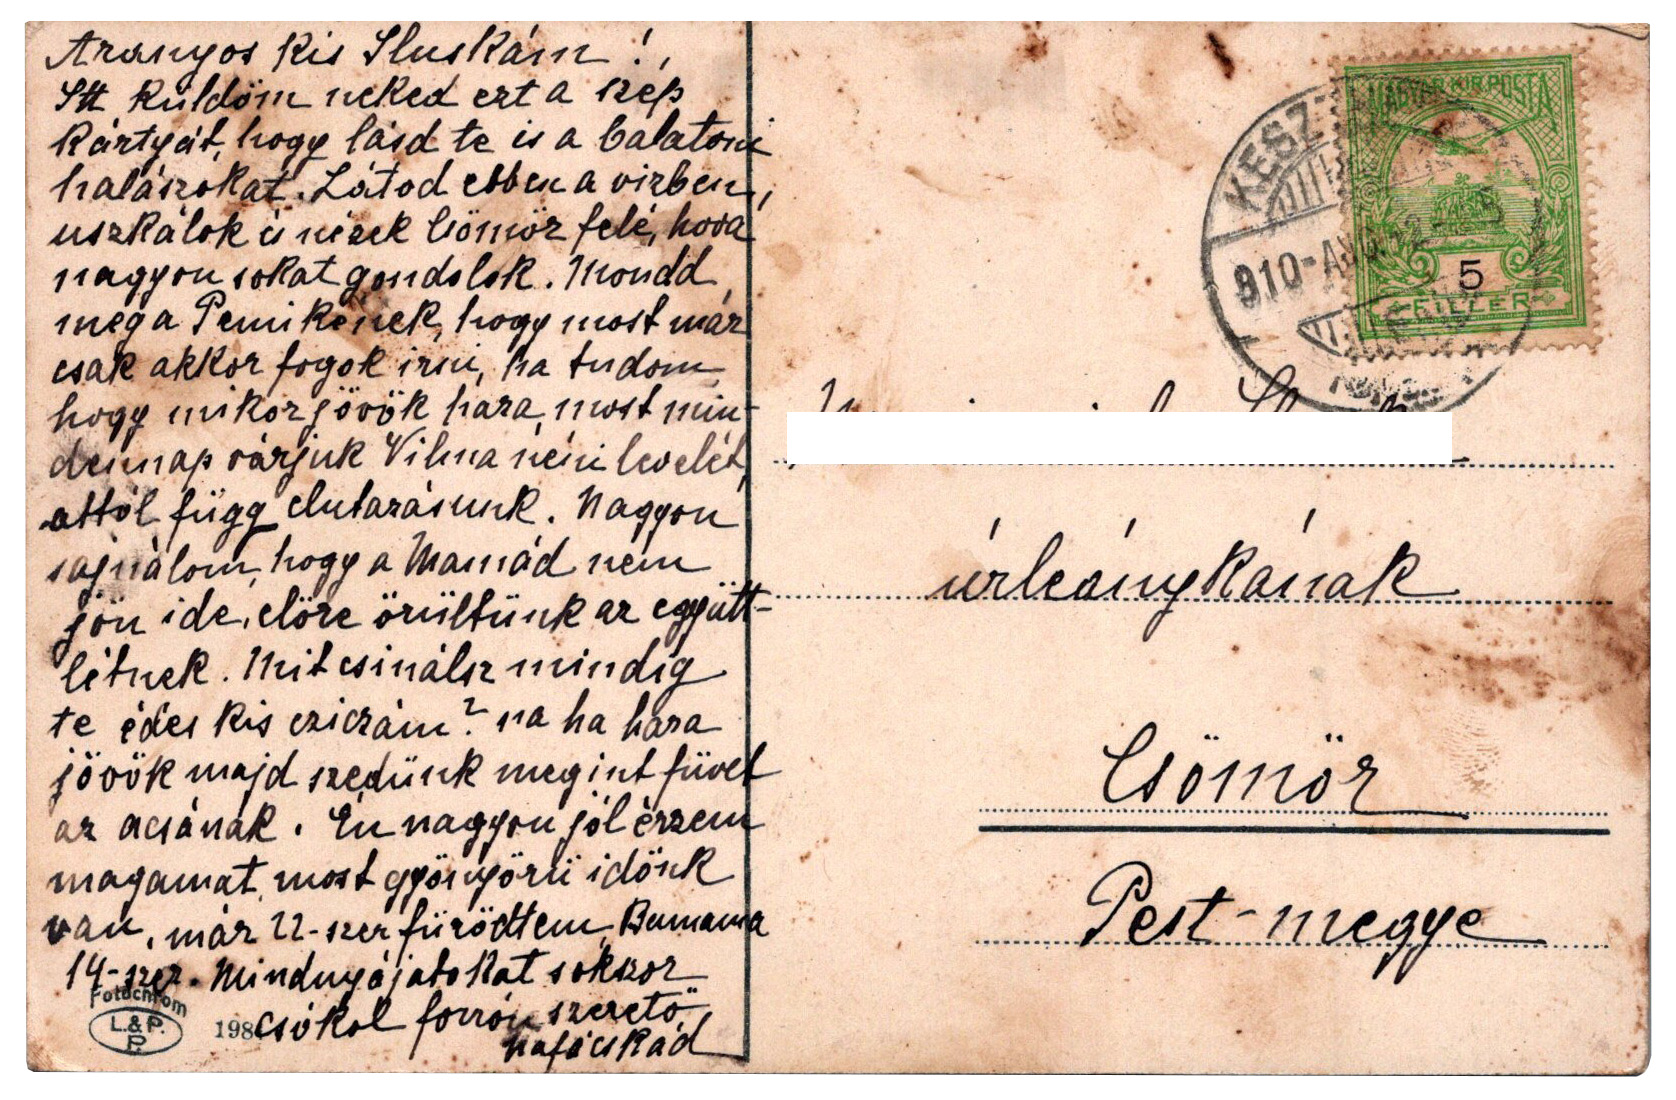 Aranyos kis Iluskám!,
Itt küldöm neked ezt a szép
kártyát, hogy lásd te is a balatoni
halászokat. Látod ebben a vizben,
uszkálok és nézek Csömör felé, hova
nagyon sokat gondolok. Mondd
meg a Pemikének, hogy most már
csak akkor fogok irni, ha tudom,
hogy mikor jövök haza, most min-
dennap várjuk Vilma néni levelét,
attól függ elutazásunk. Nagyon
sajnálom, hogy a Mamád nem
jön ide, előre örültünk az együtt-
létnek. Mit csinálsz mindig
te édes kis cziczám? na ha haza
jövök majd szedünk megint füvet
az acsának. Én nagyon jól érzem
magamat, most gyönyörü időnk
van, már 22-szer fürödtem, Bumama
14-szer. Mindnyájatokat sokszor
csókol forrón szerető
Fotochrom
L. & P.
P.
198
MAGYAR KIR. POSTA
5
FILLÉR
KESZT
910-AUG. 12
úrleánykának
Csömör
Pest-megye